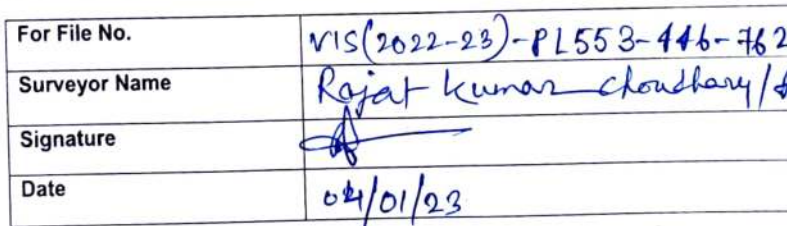 For File No. VIS(2022-23)-PL553-446-762
Surveyor Name Rajat Kumar Choudhary/
Signature
Date 04/01/23